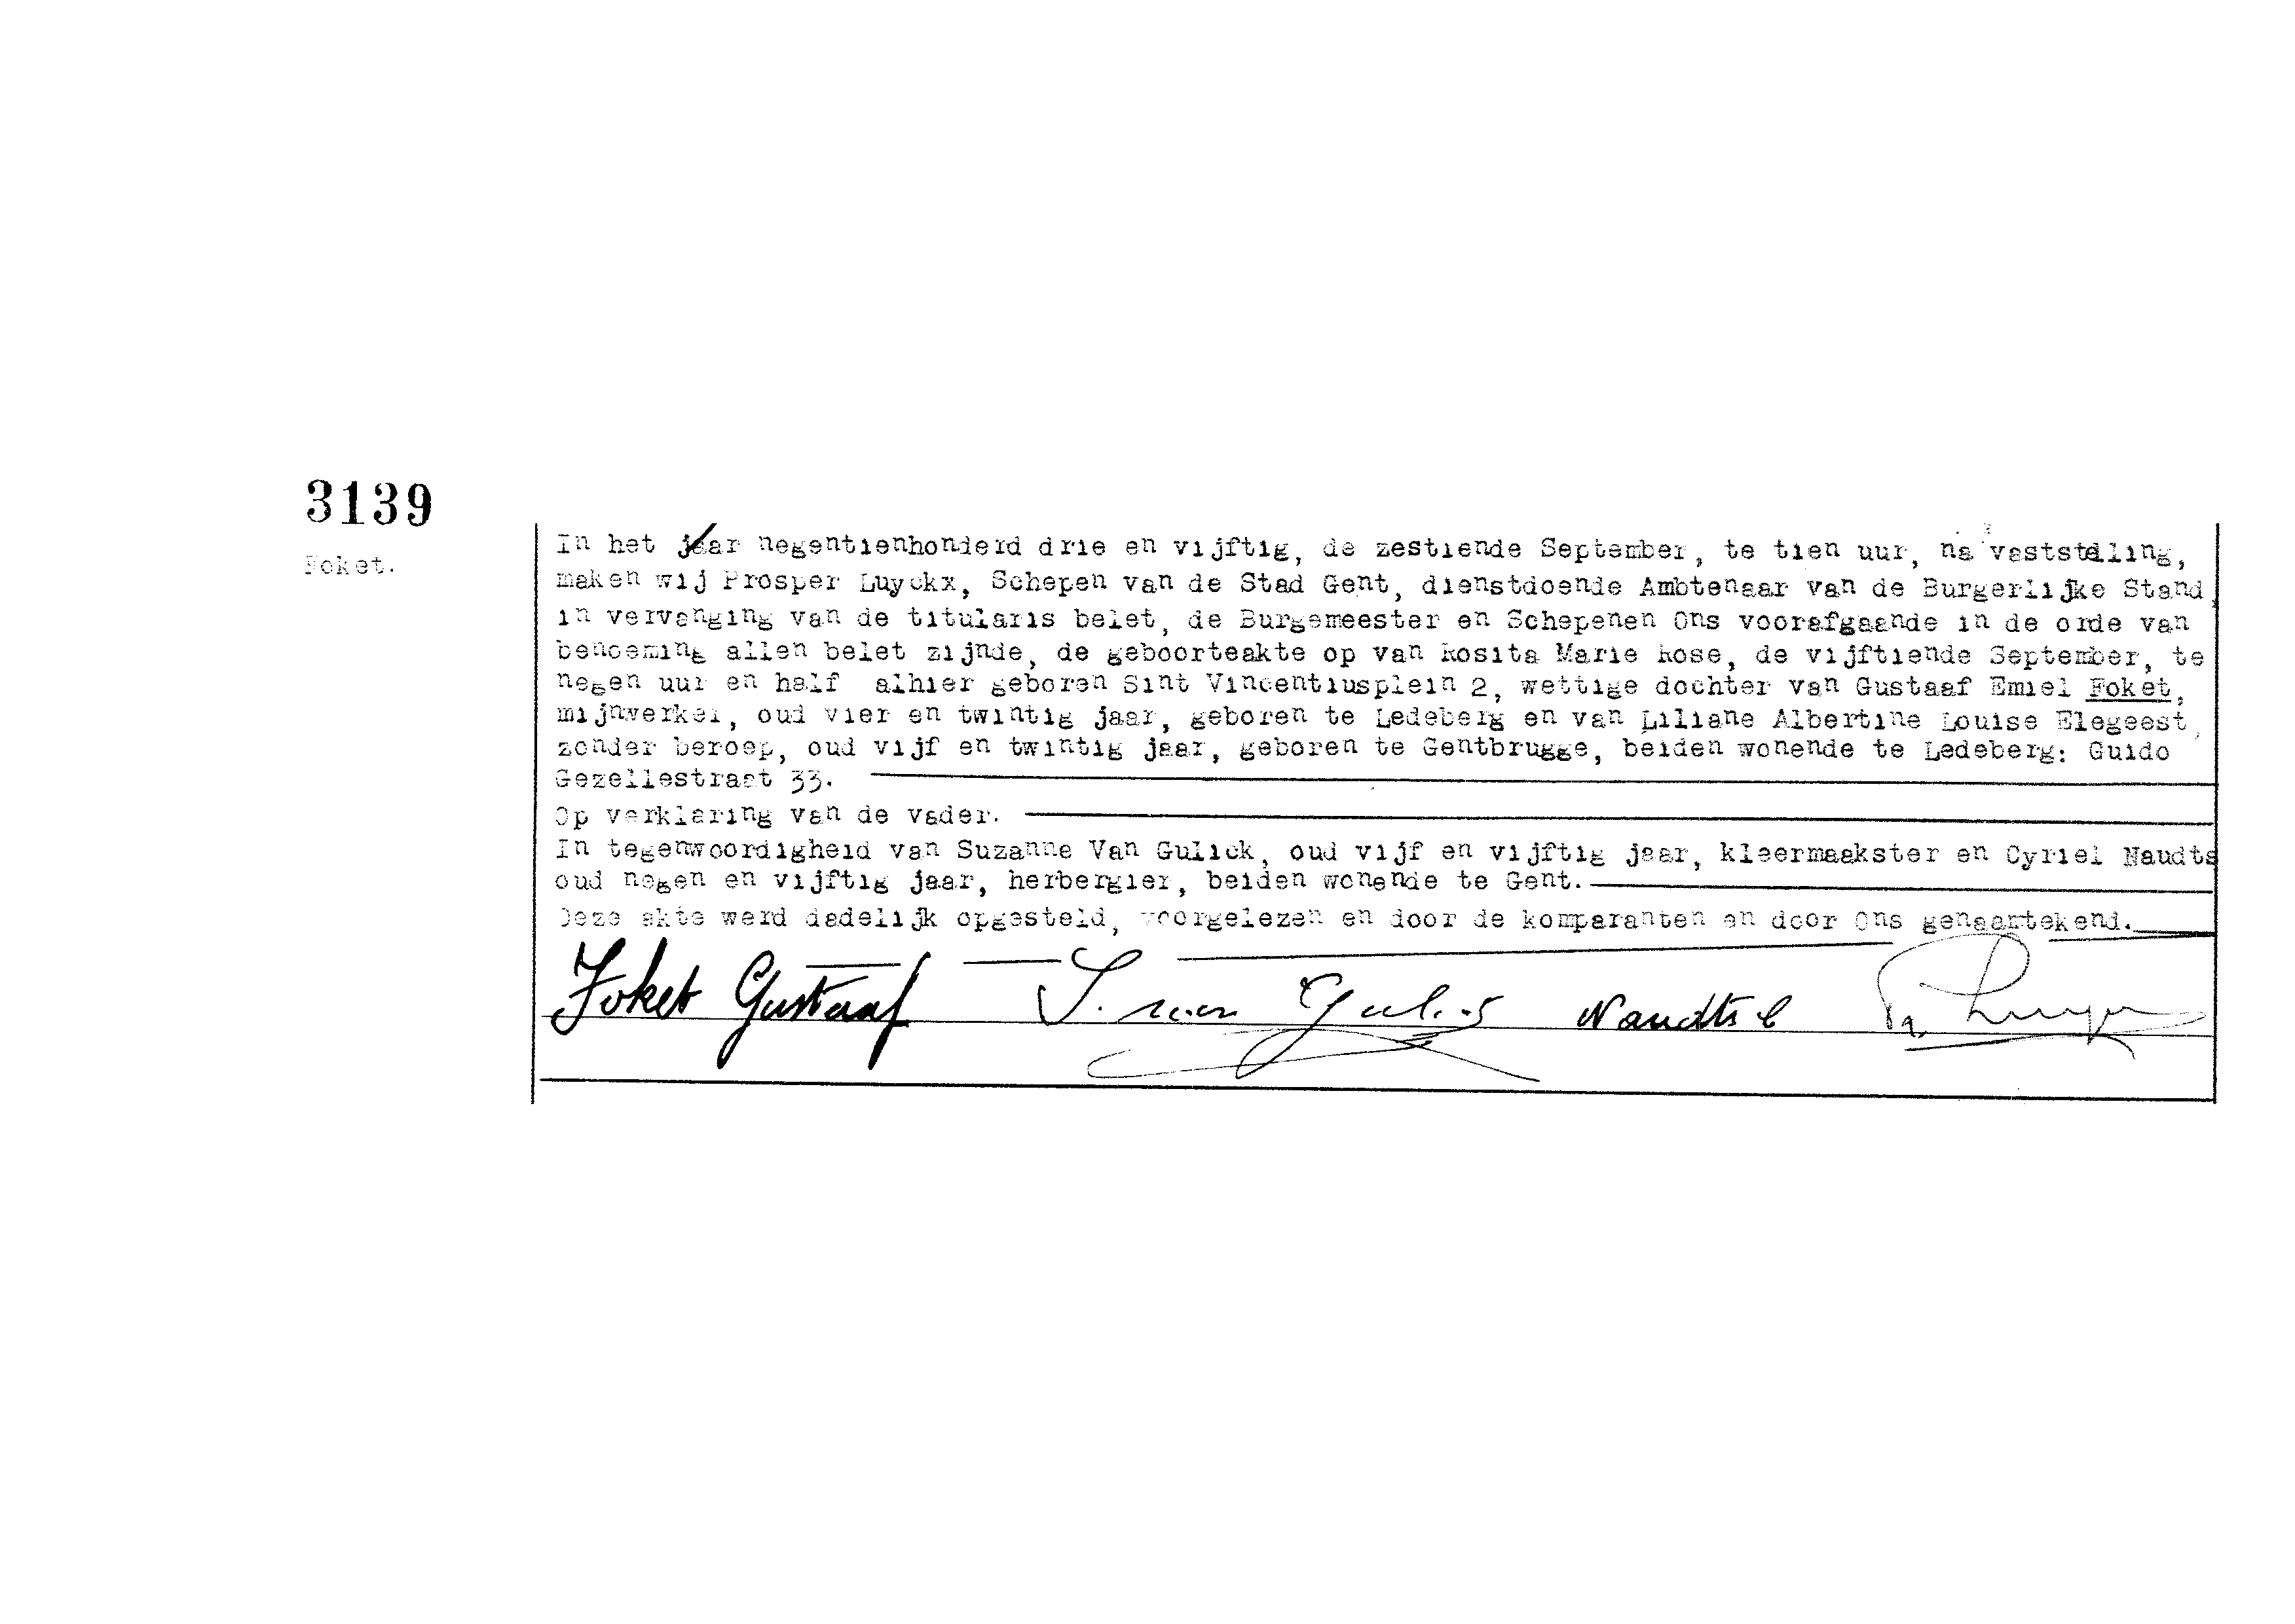 3139
Foket.
In het jaar negentienhonderd drie en vijftig, de zestiende September, te tien uur, na vaststelling,
maken wij Prosper Luyckx, Schepen van de Stad Gent, dienstdoende Ambtenaar van de Burgerlijke Stand,
in vervanging van de titularis belet, de Burgemeester en Schepenen Ons voorafgaande in de orde van
benoeming allen belet zijnde, de geboorteakte op van Rosita Marie Rose, de vijftiende September, te
negen uur en half alhier geboren Sint Vincentiusplein 2, wettige dochter van Gustaaf Emiel Foket,
mijnwerker, oud vier en twintig jaar, geboren te Ledeberg en van Liliane Albertine Louise Elegeest,
zonder beroep, oud vijf en twintig jaar, geboren te Gentbrugge, beiden wonende te Ledeberg: Guido
Gezellestraat 33.
Op verklaring van de vader.
In tegenwoordigheid van Suzanne Van Gulick, oud vijf en vijftig jaar, kleermaakster en Cyriel Naudts
oud negen en vijftig jaar, herbergier, beiden wonende te Gent.
Deze akte werd dadelijk opgesteld, voorgelezen en door de komparanten en door Ons genaamtekend.
Foket Gustaaf S. van Naudts C